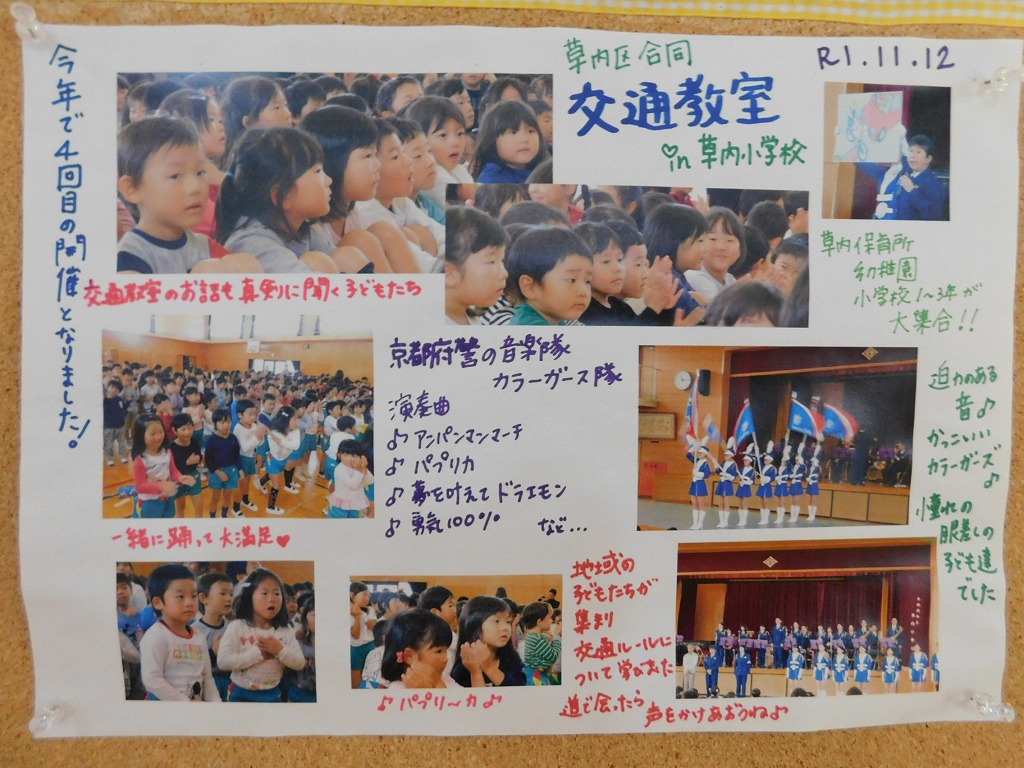 今年で4回目の開催となりました!
草内区合同
交通教室
in 草内小学校
R1.11.12
交通教室のお話も真剣に聞く子どもたち
草内保育所
幼稚園
小学校1~3年が
大集合!!
京都府警の音楽隊
カラーガース隊
演奏曲
♪アンパンマンマーチ
♪パプリカ
♪夢を叶えてドラエモン
♪勇気100% など...
迫力のある
音♪
かっこいい
カラーガーズ♪
憧れの
眼差しの
子ども達
でした
一緒に踊って大満足♥
♪パプリ~カ♪
地域の
子どもたちが
集まり
交通ルールに
ついて学びあった
道で会ったら
声をかけあおうね♪